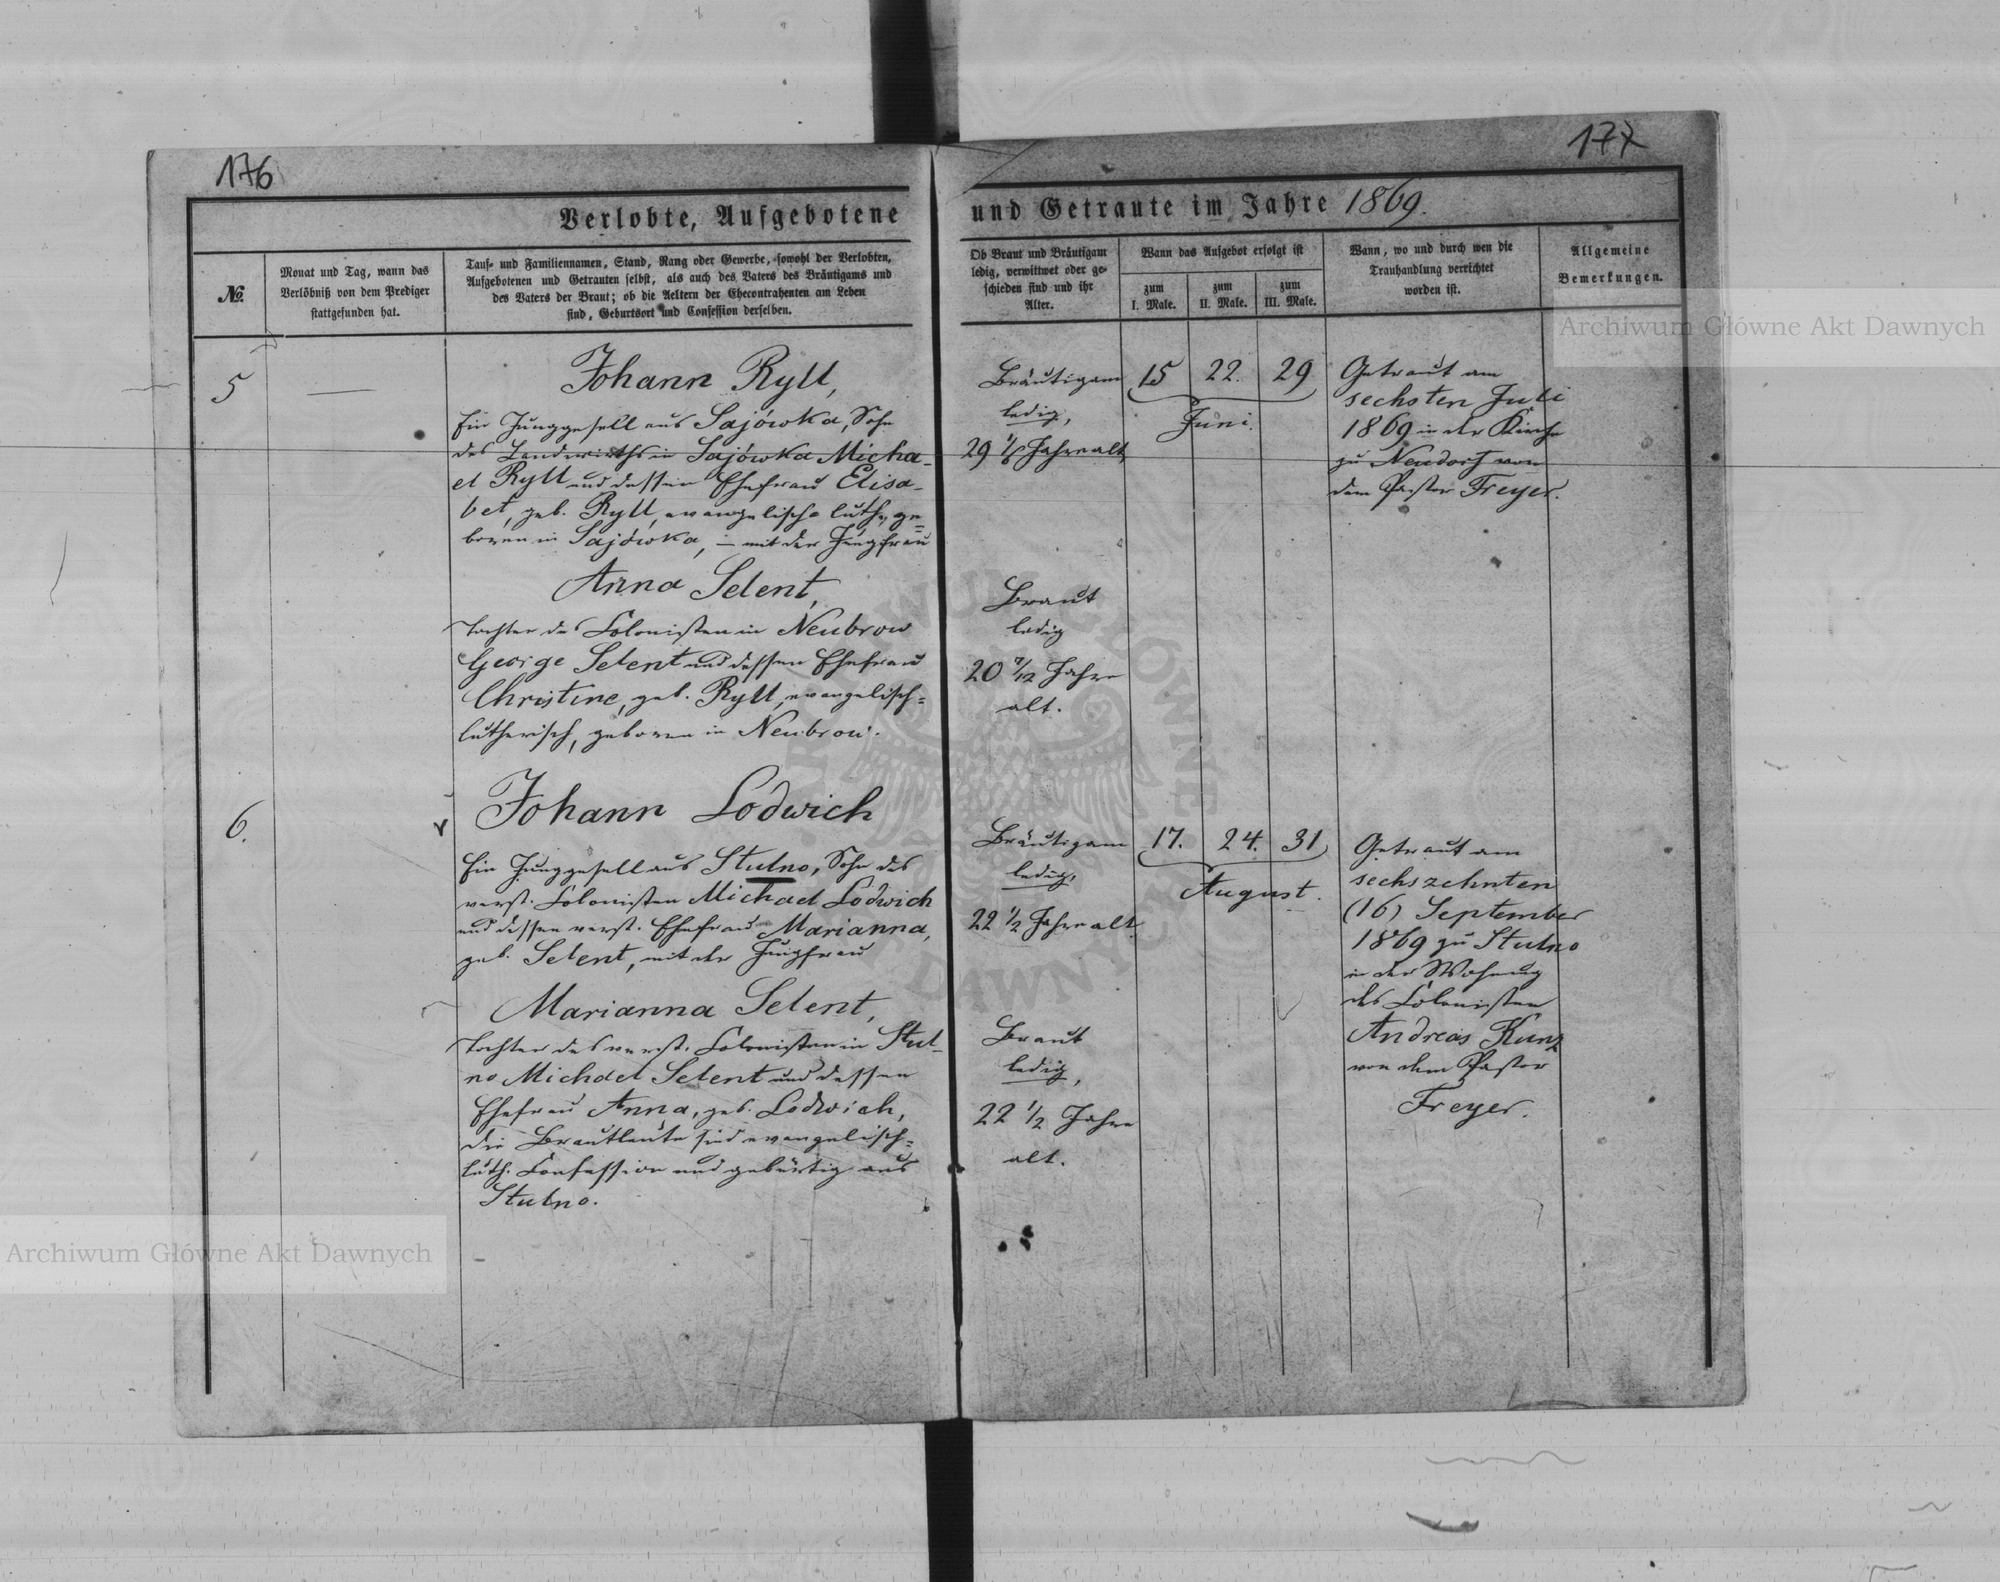 176
177
Verlobte, Aufgebotene
und Getraute im Jahre 1869.
No.
Monat und Tag, wann das
Verlöbniß von dem Prediger
stattgefunden hat.
Tauf- und Familiennamen, Stand, Rang oder Gewerbe, sowohl der Verlobten,
Aufgebotenen und Getrauten selbst, als auch des Vaters des Bräutigams und
des Vaters der Braut; ob die Aeltern der Ehecontrahenten am Leben
sind, Geburtsort und Confession derselben.
Ob Braut und Bräutigam
ledig, verwittwet oder ge-
schieden sind und ihr
Alter.
Wann das Aufgebot erfolgt ist
zum
I. Male.
zum
II. Male.
zum
III. Male.
Wann, wo und durch wen die
Trauhandlung verrichtet
worden ist.
Allgemeine
Bemerkungen.
5
Johann Ryll,
Ein Junggesell aus Sajówka, Sohn
des Landwirths in Sajówka Micha-
el Ryll und dessen Ehefrau Elisa-
bet, geb. Ryll, evangelisch luth., ge=
boren in Sajówka, – mit der Jungfrau
Anna Selent,
Tochter des Colonisten in Neubrow
George Selent und dessen Ehefrau
Christine, geb. Ryll, evangelisch=
lutherisch, geboren in Neubrow.
Bräutigam
ledig,
29 1/6 Jahre alt,
Braut
ledig
20 7/12 Jahre
alt.
15 22. 29
Juni.
Getraut am
sechsten Juli
1869 in der Kirche
zu Neudorf von
dem Pastor Freyer.
6.
Johann Lodwich
Ein Junggesell aus Stulno, Sohn des
verst. Colonisten Michael Lodwich
und dessen verst. Ehefrau Marianna,
geb. Selent, mit der Jungfrau
Marianna Selent,
Tochter des verst. Colonisten in Stul-
no Michael Selent und dessen
Ehefrau Anna, geb. Lodwich,
die Brautleute sind evangelisch=
luth. Confession und gebürtig aus
Stulno.
Bräutigam
ledig,
22 1/2 Jahre alt.
Braut
ledig,
22 1/2 Jahre
alt.
17. 24. 31
August.
Getraut am
sechszehnten
(16) September
1869 zu Stulno
in der Wohnung
des Colonisten
Andreas Kunz
von dem Pastor
Freyer.
Archiwum Główne Akt Dawnych
Archiwum Główne Akt Dawnych